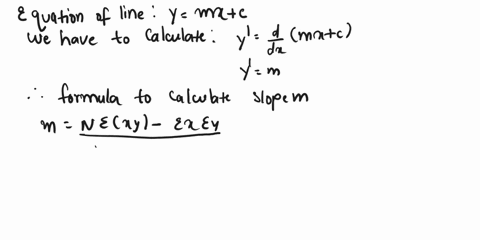 Equation of line: y = mx+c
We have to calculate: y' = d/dx (mx+c)
y' = m
∴ formula to calculate slope m
m = NΣ(xy) - Σx Σy